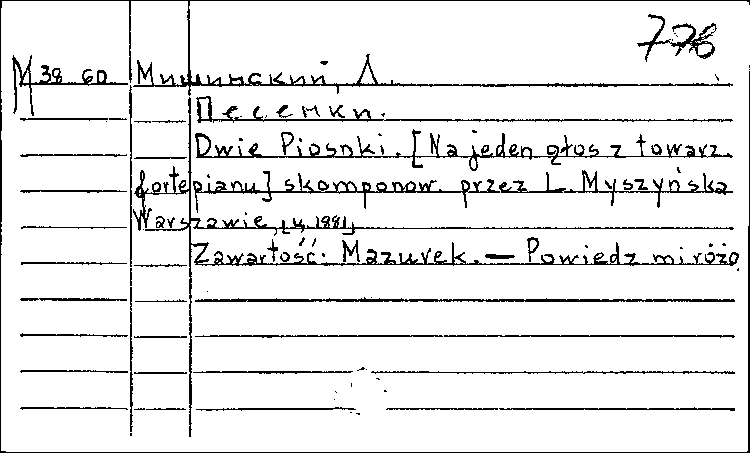 778
М 38 60 Мишинский, Л.
Песенки.
Dwie Piosnki. [Na jeden głos z towarz.
fortepianu] skomponow. przez L. Myszyńska
Warszawie, [ц, 1881]
Zawartość: Mazurek. — Powiedz mi różo